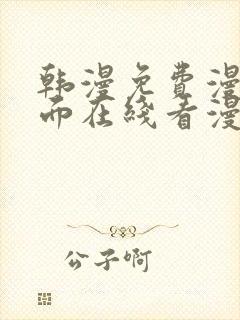 韩漫免费漫
而在线看漫
公子啊